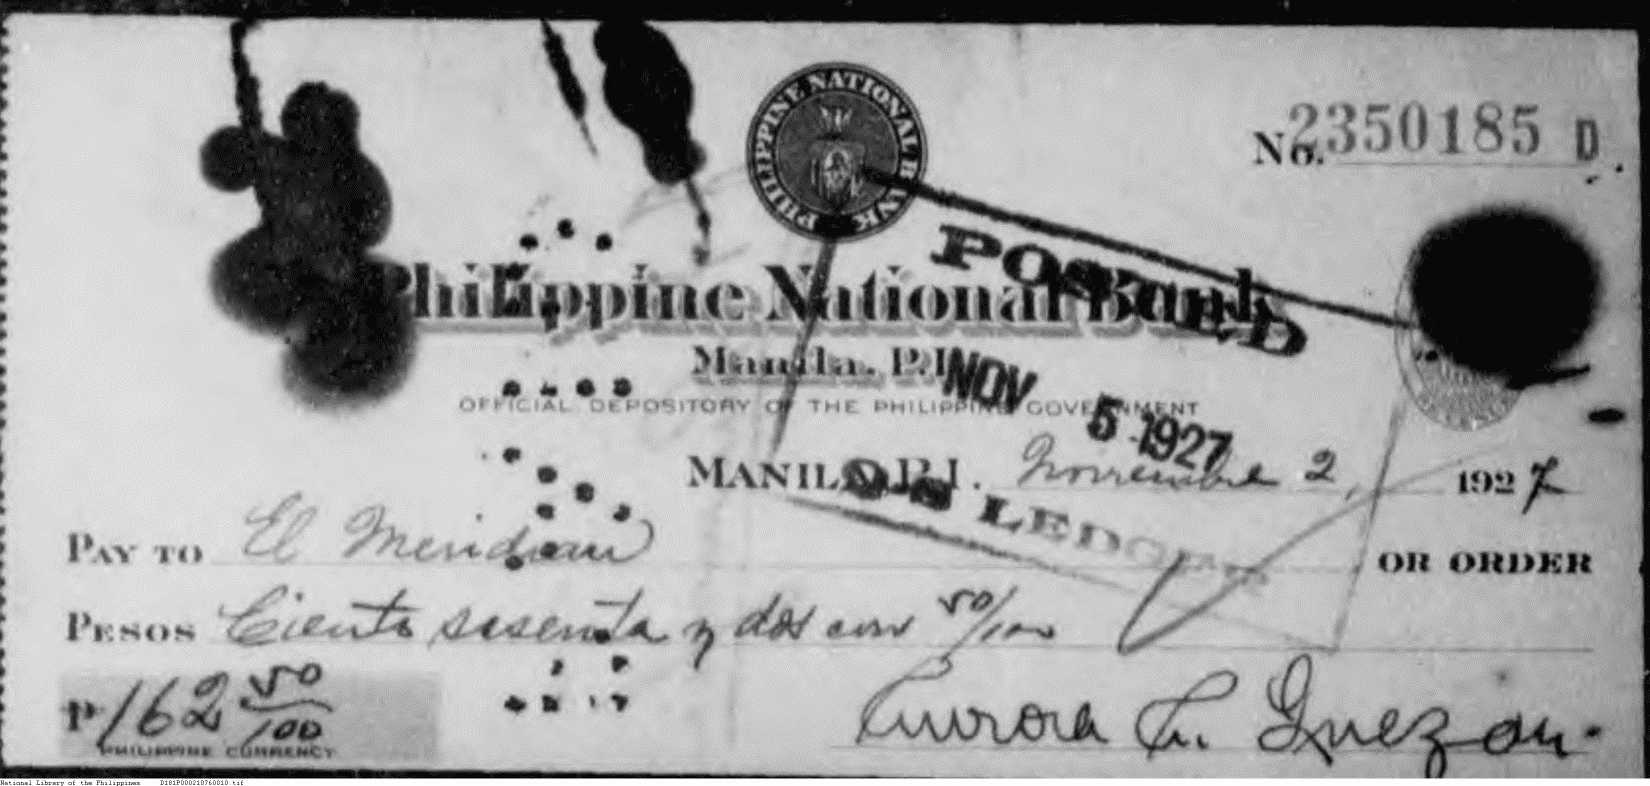 PHILIPPINE NATIONAL BANK
No. 2350185 D
Philippine National Bank
POSTED
Manila, P.I.
NOV 5 1927
OFFICIAL DEPOSITORY OF THE PHILIPPINE GOVERNMENT
MANILA, P.I. Noviembre 2, 1927
ON LEDGER
PAY TO El Meridian OR ORDER
PESOS Ciento sesenta y dos con 50/100
₱162 50/100
PHILIPPINE CURRENCY
Aurora A. Quezon.
National Library of the Philippines D181P000210760010.tif